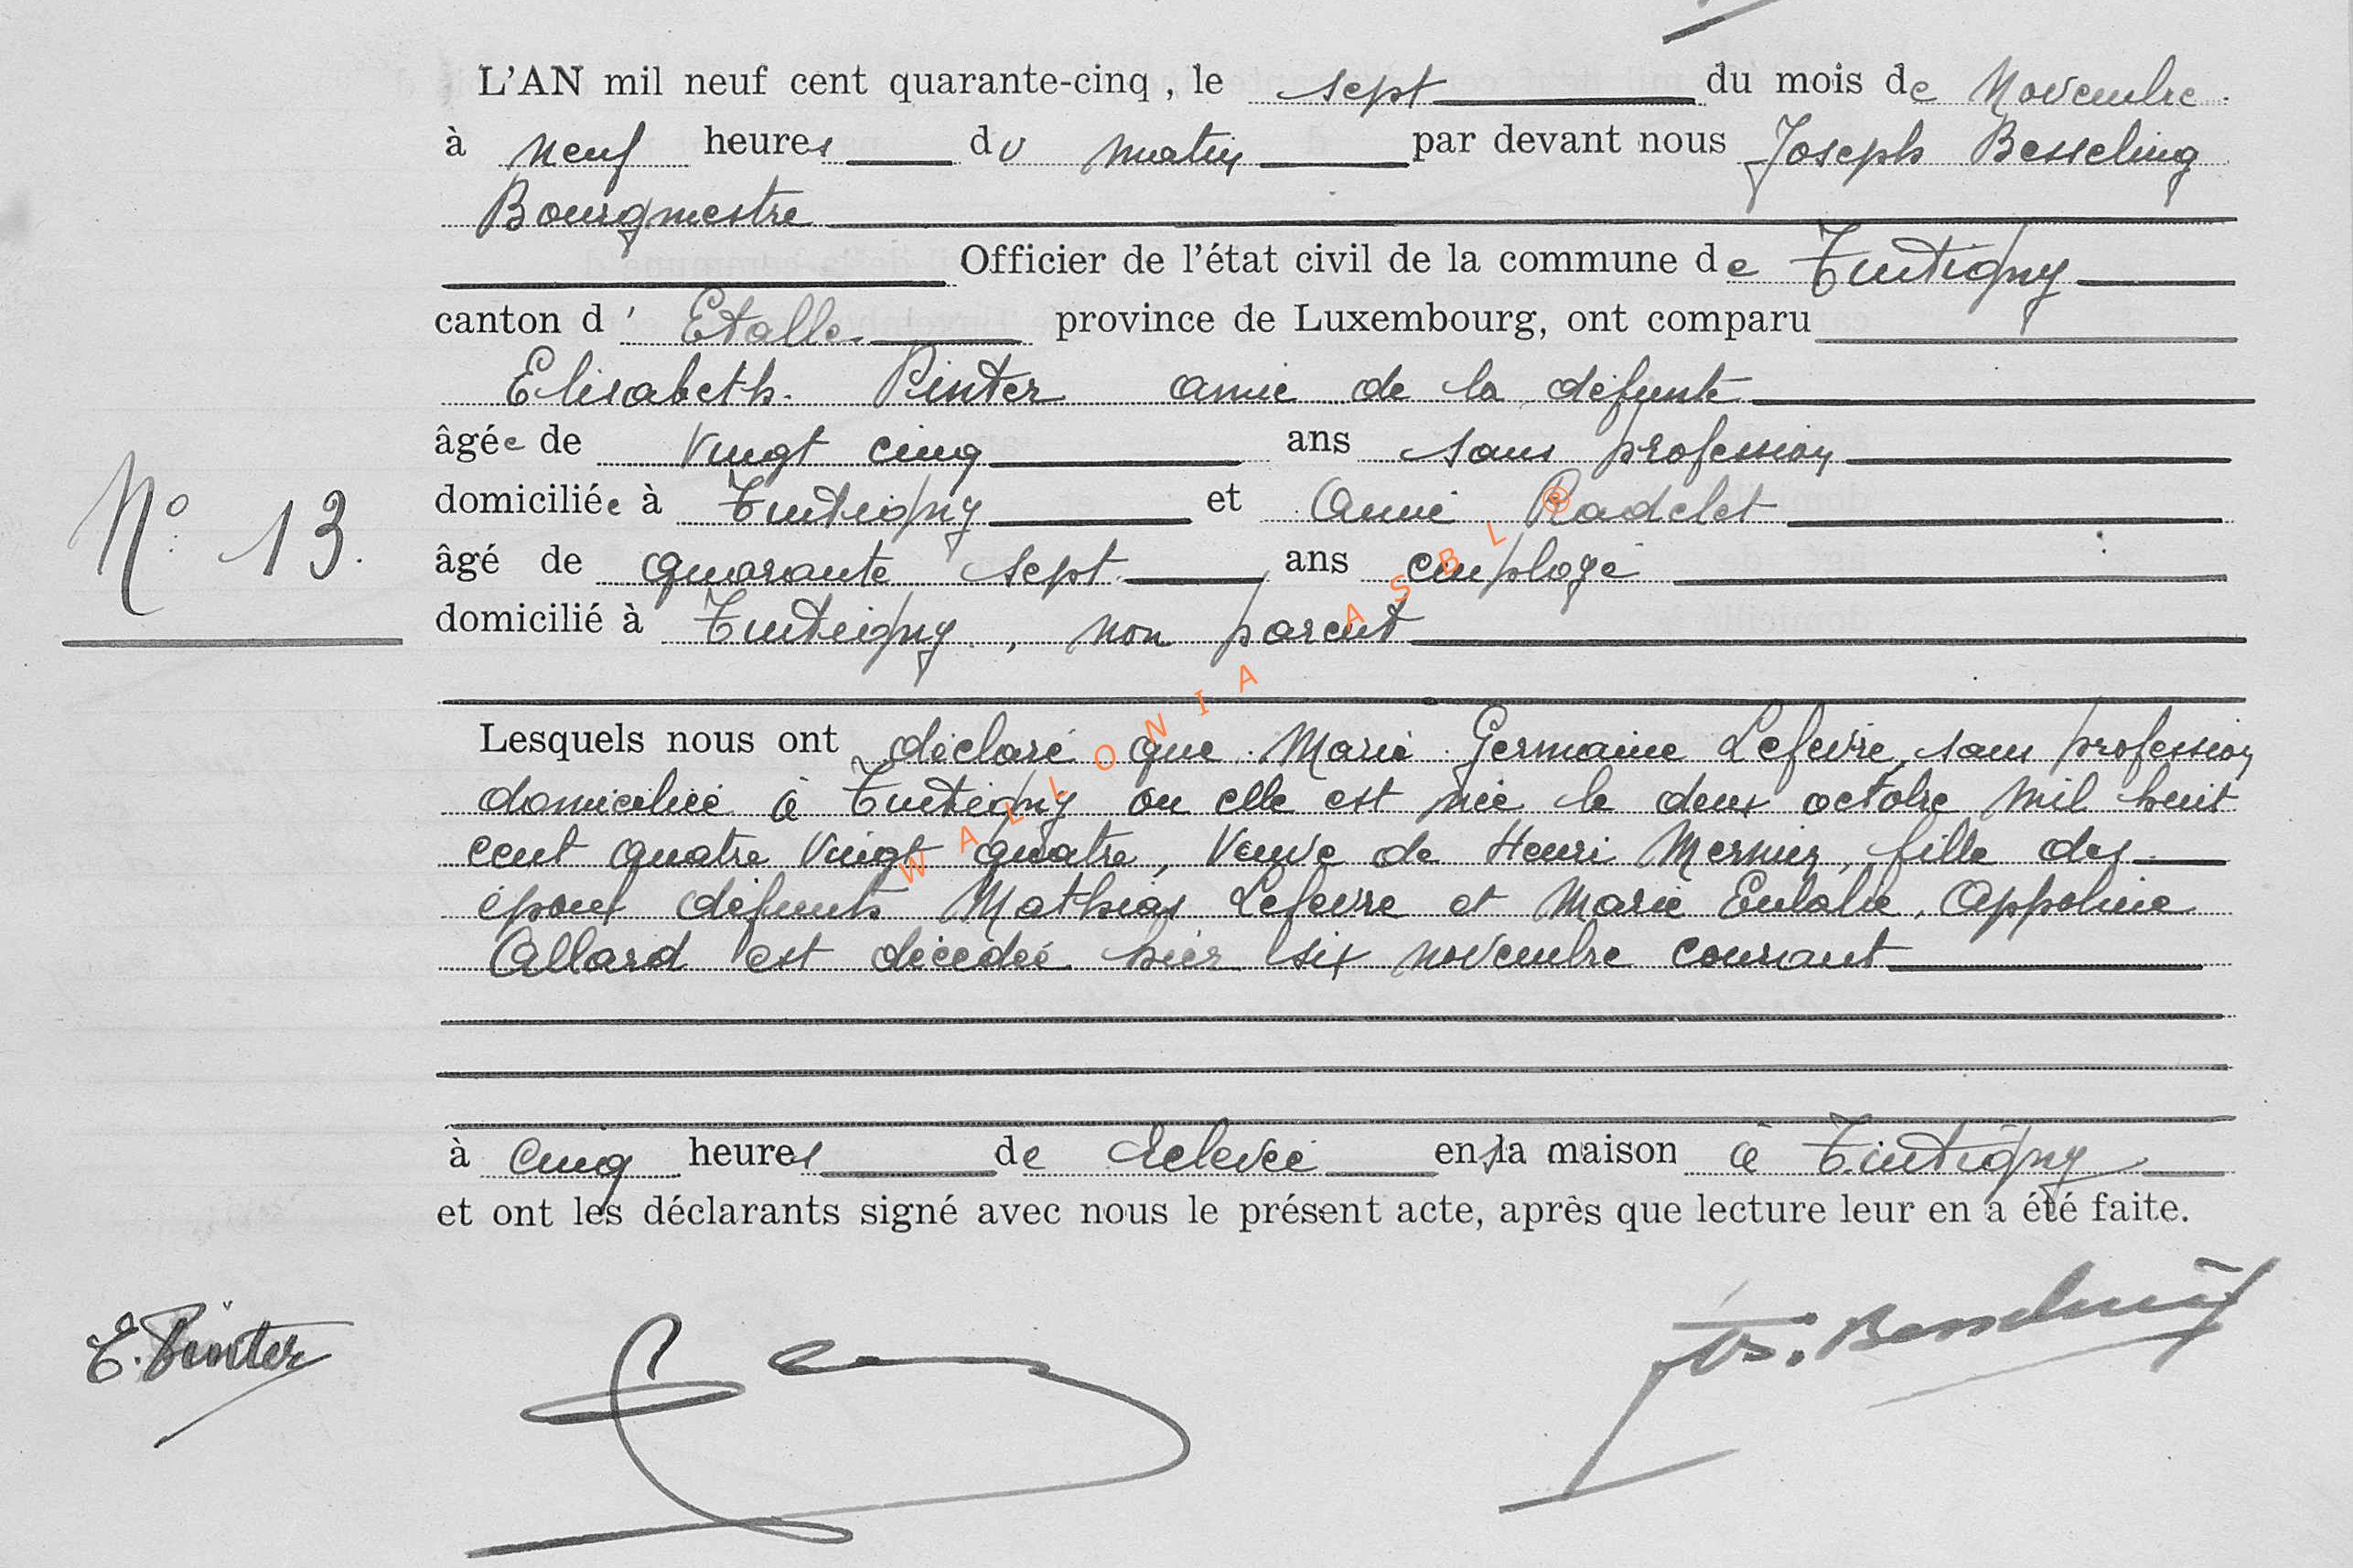 L'AN mil neuf cent quarante-cinq, le sept du mois de Novembre
à neuf heures du matin par devant nous Joseph Besseling
Bourgmestre
Officier de l'état civil de la commune de Tintigny
canton d' Etalle province de Luxembourg, ont comparu
Elisabeth Pinter amie de la défunte
âgée de vingt cinq ans sans profession
domiciliée à Tintigny et Aimé Radelet
N° 13.
âgé de quarante sept ans employé
domicilié à Tintigny, non parent
Lesquels nous ont déclaré que Marie Germaine Lefevre, sans profession
domiciliée à Tintigny ou elle est née le deux octobre mil huit
cent quatre vingt quatre, veuve de Henri Mernier, fille des
époux défunts Mathias Lefevre et Marie Eulalie, Appoline
Allard est décédée hier six novembre courant
à cinq heures de relevée en sa maison à Tintigny
et ont les déclarants signé avec nous le présent acte, après que lecture leur en a été faite.
E. Pinter
Jos. Besseling
WALLONIA ASBL ®